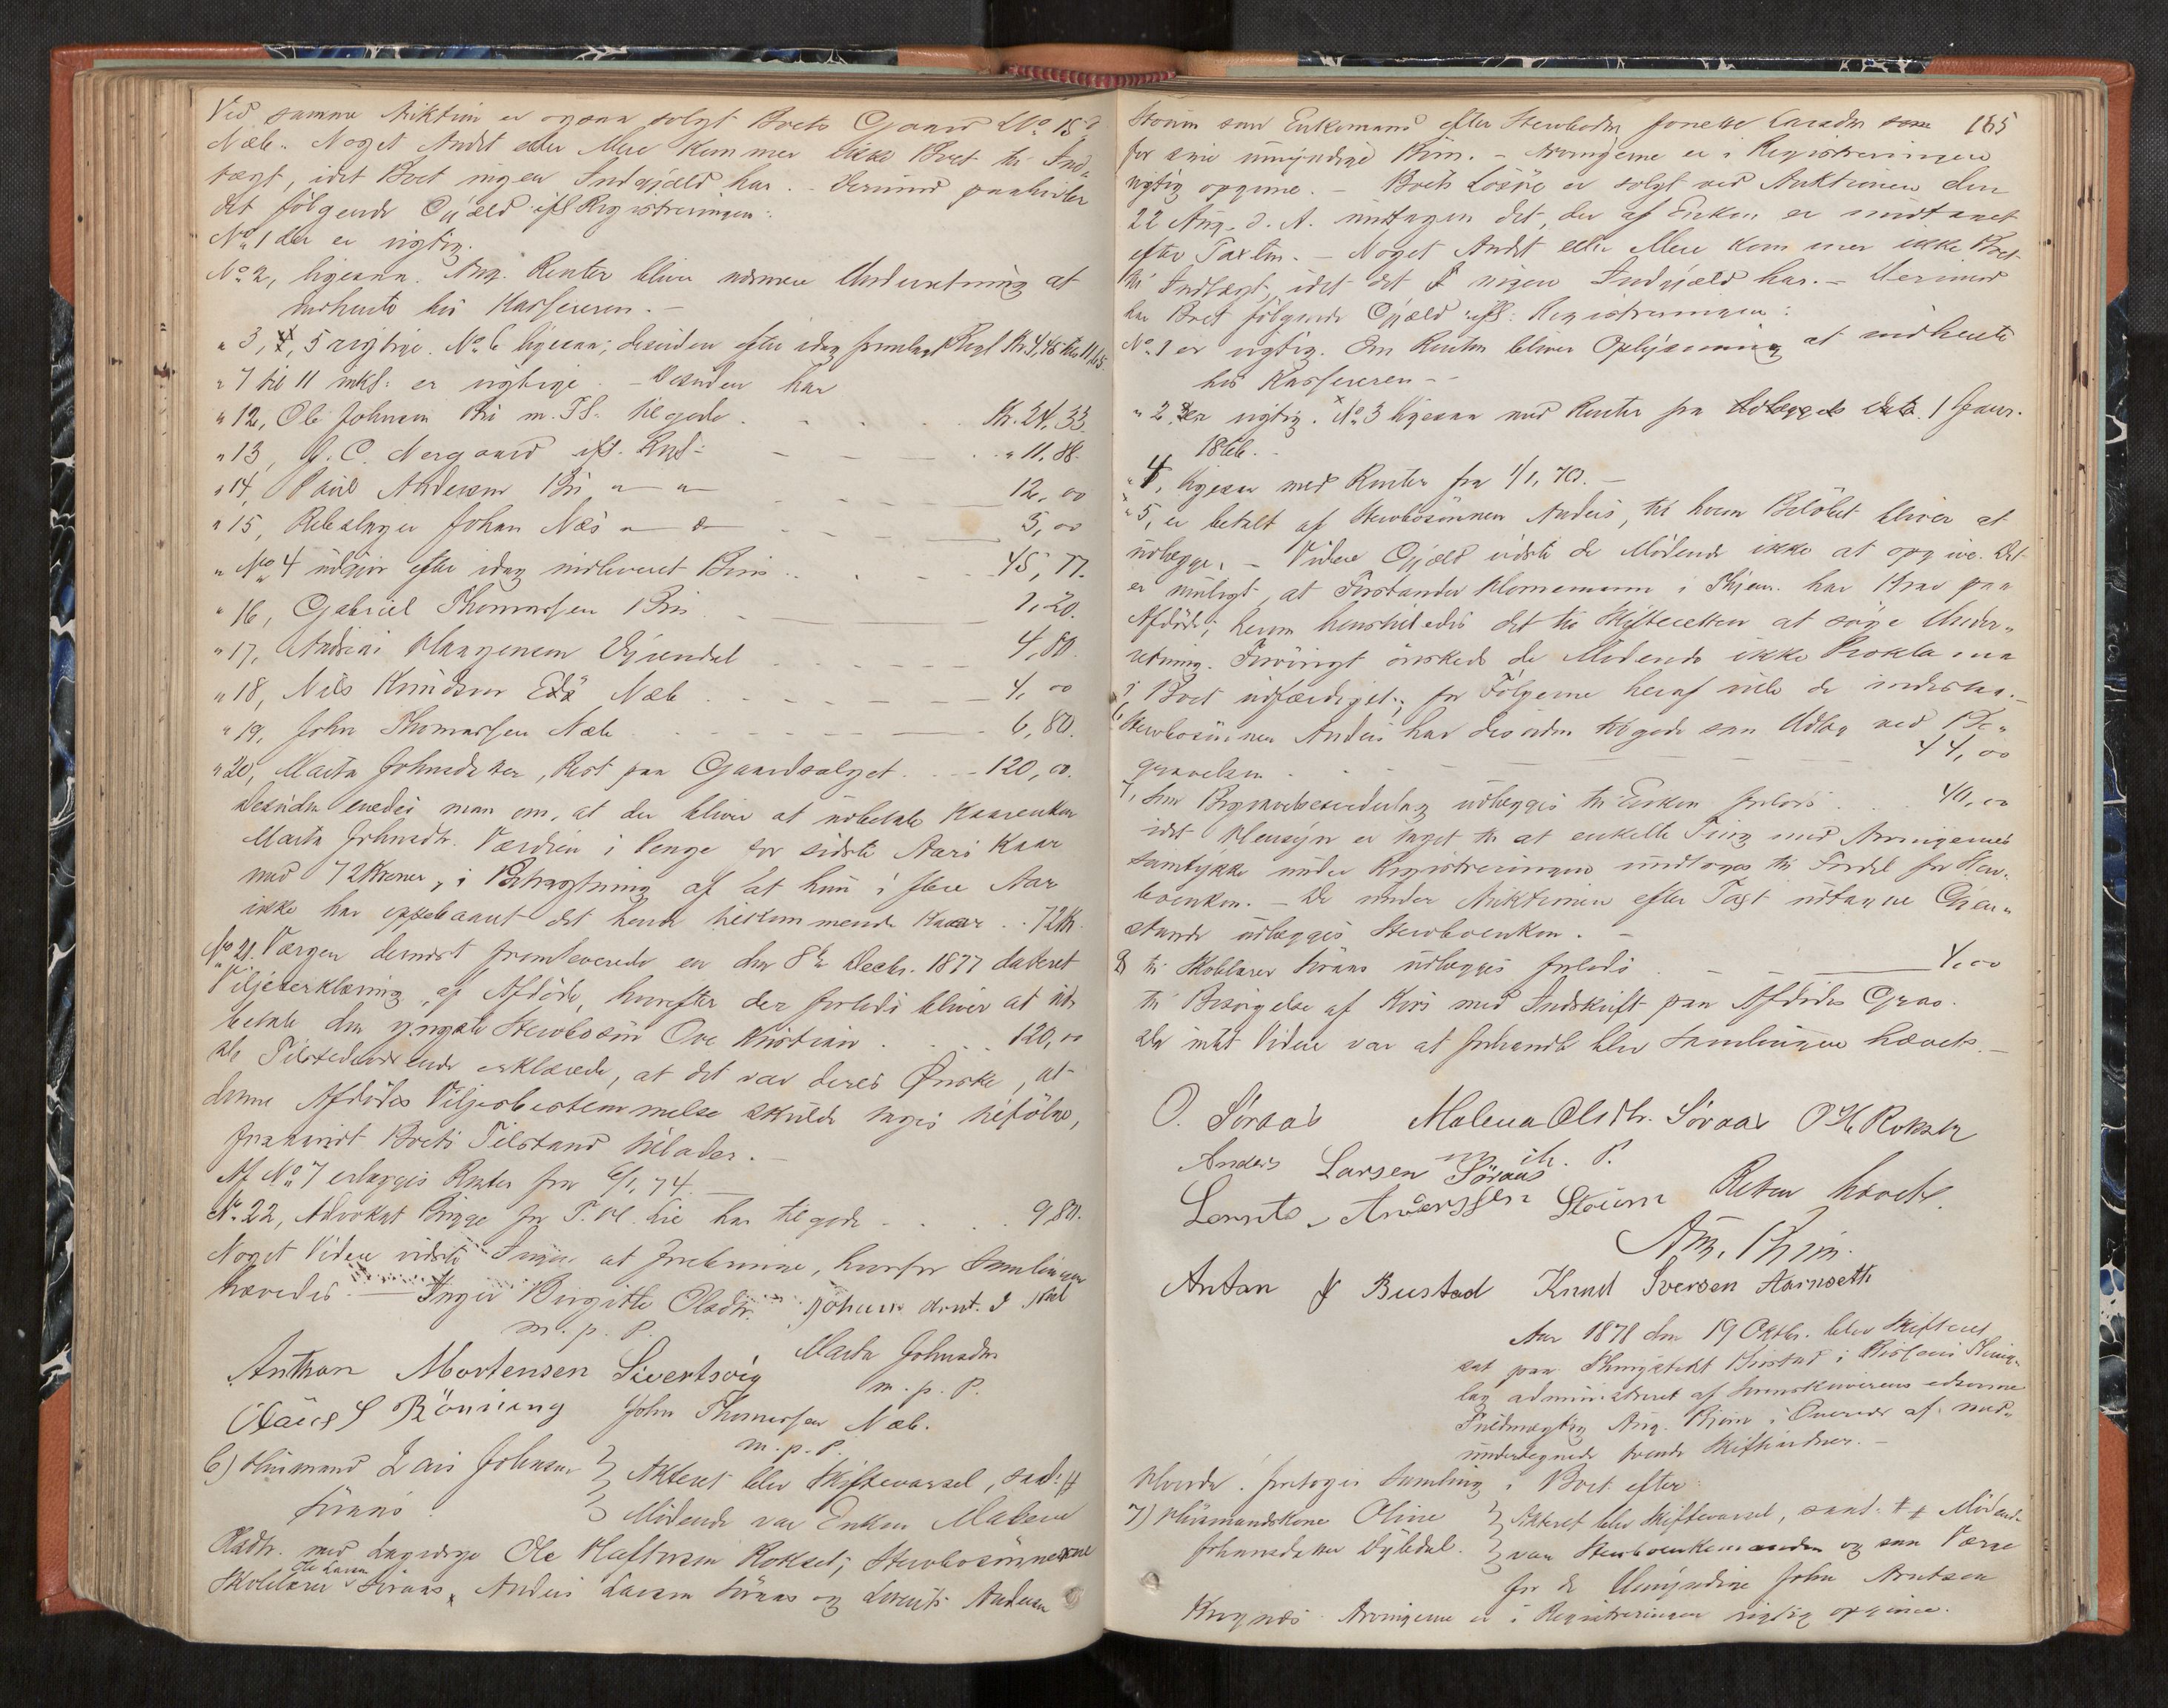 Ved samme Auktion er ogsaa solgt Boets Gaard Lbo 15 d
Næb. Noget Andet eller Mere kommer ikke Boet til Ind-
tægt, idet Boet ingen Indgjæld har. Derimod paahviler
det følgende Gjæld ifl Registreringen:
No 1 der er rigtig.
No 2, ligesaa. Ang. Renter bliver nærmere Underretning at
indhente hos Kassereren.
" 3, 4, 5 rigtige. No 6 ligesaa; desuden efter idag fremlagt Regl Kr. 4,48
" 7 til 11 inkl: er rigtige. Desuden har
" 12, Ole Johnsen Bri m. Fl. tilgode Kr. 24,33
" 13, J. C. Nergaard ifl. Rgl: " 11,88.
" 14, Paul Andersen Bri " " 12,00
" 15, Rebslager Johan Næs " " 5,00
" No 4 udgjør efter idag indleveret Bevis 45,77.
" 16, Gabriel Thomassen Bri 1,20.
" 17, Andreas Haagensen 4,80.
" 18, Nils Knudsen Edø Næb 4,00
" 19, John Thomassen Næb 6,80.
" 20, Marta Johnsdatter, Rest paa Gaardsalget 120,00.
Desuden enedes man om, at der bliver at udbetale Kaarenken
Marta Johnsdtr. Værdien i Penge for sidste Aars Kaar
med 72 Kroner, i Betragtning af at hun i flere Aar
ikke har oppebaaret det hende tilkommende Kaar 72 K.
No 21. Værgen dernæst fremleverede en den 8de Decbr. 1877 dateret
Viljeserklæring af Afdøde, hvorefter der forlods bliver at ud-
betale den yngste Stervbosøn Ove Kristian 120,00
Alle Tilstedeværende erklærede, at det var deres Ønske, at
denne Afdødes Viljesbestemmelse skulde tages tilfølge,
forsaavidt Boets Tilstand tillader.
Af No 7 erlægges Renter fra 6/1 74.
No 22, Advokat Bügge for P. M. Lie har tilgode 9,80.
Noget Videre vidste Ingen at frembringe, hvorfor Samlingen
hævedes. Inger Birgitte Olsdtr. Johan Arnt. J Næb
m. p. P.
Anthon Mortensen Sivertsvig Marta Johnsdtr
m. p. P.
Claus S Rönning John Thomassen Næb.
m. p. P.
6) Husmand Lars Johnsen Akteret blev Skiftevarsel, saal: #
Søraas. Mødende var Enken Malena
Olsdtr. med Lagværge Ole Halftersen Rokset; Stervbosønnerne
Skolelærer Ole Larsen Søraas, Anders Larsen Søraas og Lorents Andersen
165
Støum som Enkemand efter Stervbodtr. Jonette Larsdtr
for sine umyndige Børn. - Arvingerne er i Registreringen
rigtig opgivne. - Boets Løsøre er solgt ved Auktionen den
22 Aug. d. A. undtagen det, der af Enken er undtaget
efter Taxten. - Noget Andet eller Mere kommer ikke Boet
til Indtægt, idet det ingen Indgjæld har. - Derimod
har Boet følgende Gjæld ifl: Registreringen:
No 1 er rigtig. Om Renten bliver Oplysning at indhente
hos Kassereren. -
" 2 er rigtig. No 3 ligesaa med Renter fra 1 Januar
1866.
" 4, ligesaa med Renter fra 1/1, 70. -
" 5, er betalt af Stervbosønnen Anders, til hvem Beløbet bliver at
udlægge. - Videre Gjæld vidste de Mødende ikke at opgive. Det
er muligt, at Forstander Hornemann i har Krav paa
Afdøde; herom henstilledes det til Skifteretten at søge Under-
retning. Forøvrigt ønskede de Mødende ikke Proklama
i Boet udfærdiget; for Følgerne heraf ville de indestaa. -
6, Stervbosønnen Anders har desuden tilgode som Udlæg ved Be-
gravelsen 44,00
7, Som Begravelsesvederlag udlægges til Enken forlods 40,00
idet Hensyn er taget til at enkelte Ting med Arvingernes
Samtykke under Registreringen undtoges til Fordel for Ster-
boenken. - De under Auktionen efter Taxt udtagne Gjen-
stande udlægges Stervboenken. -
8 til Skolelærer Søraas udlægges forlods 4,00
til Besørgelse af Kors med Indskrift paa Afdødes Grav.
Da intet Videre var at forhandle blev Samlingen hævet. -
O. Søraas Malena Olsdtr. Søraas O H Rokset
m. ih. P.
Anders Larsen Söraas
Lornts Anderssen Stöum Retten hævet.
Aug. Thiis.
Anton J Bustad Knud Iversen Aarnseth
Aar 1878 den 19 Oktbr. blev Skifteret
sat paa Thingstedet Bustad i Thing-
lag administreret af Sorenskriverens edsvorne
Fuldmægtig Aug. Thiis i Overvær af med-
undertegnede tvende Skiftevidner. -
Hvorda foretoges Samling i Boet efter:
7) Husmandskone Oline Akteret blev Skiftevarsel, saal: # Mødende
Johannesdatter Dybdal. var Stervboenkemanden og som Værge
for de Umyndige John Arntsen
Krognæs. Arvingerne er i Registreringen rigtig opgivne.